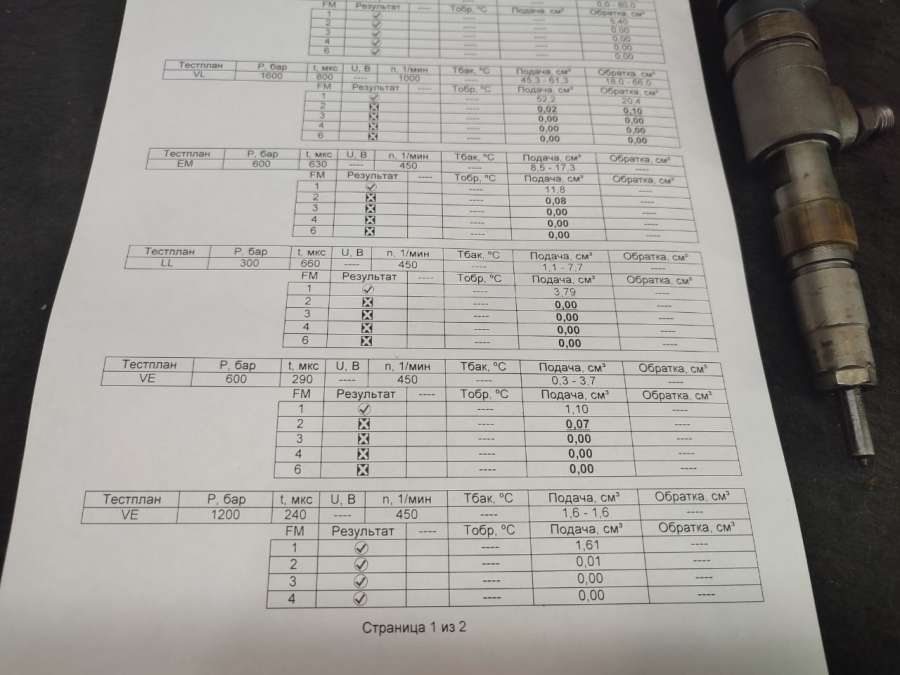 0,0 - 80,0
FM Результат ---- Тобр, ºC Подача, см³ Обратка, см³
1 ---- ---- 5,40
2 ---- ---- 0,00
3 ---- ---- 0,00
4 ---- ---- 0,00
6 ---- ---- 0,00
Тестплан P, бар t, мкс U, B n, 1/мин Тбак, ºC Подача, см³ Обратка, см³
VL 1600 800 ---- 1000 ---- 45,3 - 61,3 18,0 - 56,0
FM Результат ---- Тобр, ºC Подача, см³ Обратка, см³
1 ---- 52,2 20,4
2 ---- 0,02 0,10
3 ---- 0,00 0,00
4 ---- 0,00 0,00
6 ---- 0,00 0,00
Тестплан P, бар t, мкс U, B n, 1/мин Тбак, ºC Подача, см³ Обратка, см³
EM 600 630 ---- 450 ---- 8,5 - 17,3 ----
FM Результат ---- Тобр, ºC Подача, см³ Обратка, см³
1 ---- 11,8 ----
2 ---- 0,08 ----
3 ---- 0,00 ----
4 ---- 0,00 ----
6 ---- 0,00 ----
Тестплан P, бар t, мкс U, B n, 1/мин Тбак, ºC Подача, см³ Обратка, см³
LL 300 660 ---- 450 ---- 1,1 - 7,7 ----
FM Результат ---- Тобр, ºC Подача, см³ Обратка, см³
1 ---- 3,79 ----
2 ---- 0,00 ----
3 ---- 0,00 ----
4 ---- 0,00 ----
6 ---- 0,00 ----
Тестплан P, бар t, мкс U, B n, 1/мин Тбак, ºC Подача, см³ Обратка, см³
VE 600 290 ---- 450 ---- 0,3 - 3,7 ----
FM Результат ---- Тобр, ºC Подача, см³ Обратка, см³
1 ---- 1,10 ----
2 ---- 0,07 ----
3 ---- 0,00 ----
4 ---- 0,00 ----
6 ---- 0,00 ----
Тестплан P, бар t, мкс U, B n, 1/мин Тбак, ºC Подача, см³ Обратка, см³
VE 1200 240 ---- 450 ---- 1,6 - 1,6 ----
FM Результат ---- Тобр, ºC Подача, см³ Обратка, см³
1 ---- 1,61 ----
2 ---- 0,01 ----
3 ---- 0,00 ----
4 ---- 0,00 ----
Страница 1 из 2